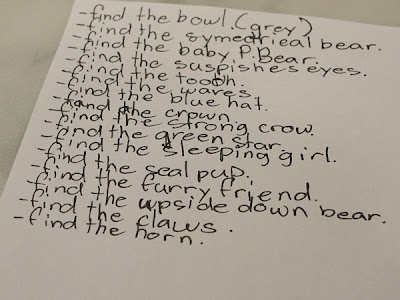 -find the bowl. (grey)
-find the symectrical bear.
-find the baby P.Bear.
-find the suspishe's eyes.
-find the tooth.
-find the waves
-find the blue hat.
-find the crown.
-find the strong crow.
-find the green star.
-find the sleeping girl.
-find the seal pup.
-find the furry friend.
-find the upside down bear.
-find the claws.
-find the horn.